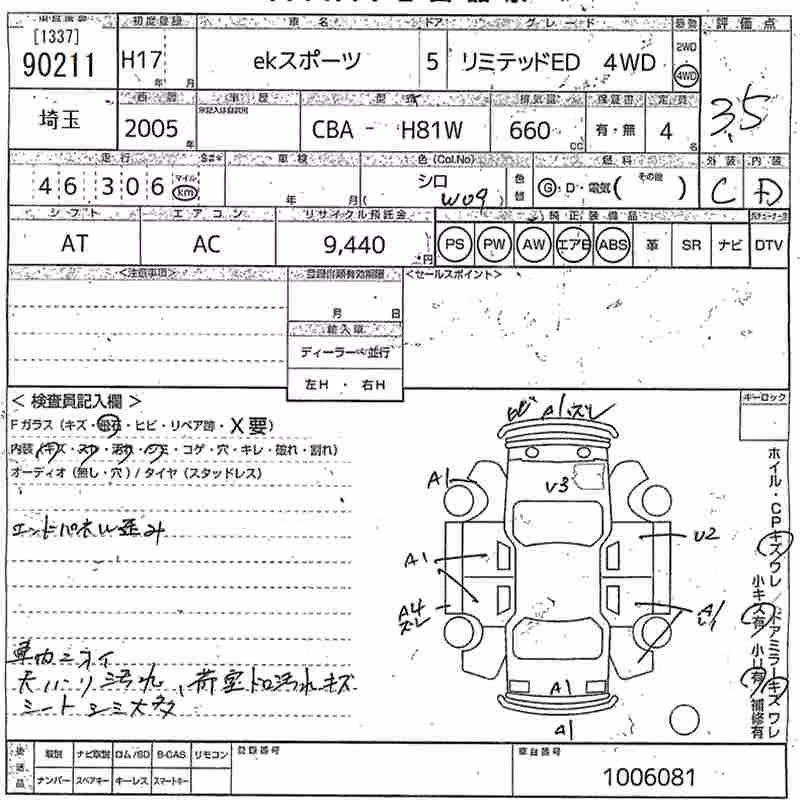 初度登録 車名 ドア グレード 駆動 評価点
[1337]
90211 H17 年 月 ekスポーツ 5 リミテッドED 4WD 2WD 4WD
3.5
埼玉 2005 年 型式 CBA - H81W 排気量 660 CC 保証書 有・無 定員 4 名
走行 車検 色(Col.No) 燃料 外装 内装
46306 マイル km 年 月 シロ W09 色替 G・D・電気( その他 ) C D
シフト エアコン リサイクル預託金 純正装備品
AT AC 9,440 円 PS PW AW エアB ABS 革 SR ナビ DTV
<注意事項> <セールスポイント>
月 日
輸入車
ディーラー・並行
左H ・ 右H
< 検査員記入欄 > キーロック
Fガラス (キズ・飛石・ヒビ・リペア跡・X要)
内装 (キズ・スレ・汚れ・シミ・コゲ・穴・キレ・破れ・割れ)
オーディオ (無し・穴) / タイヤ (スタッドレス)
エンドパネル歪み
A1 ズレ
V3
A1
U2
A1
A4
ズレ
A1
A1
A1
ホイル・CPキズワレ/ドアミラーキズワレ
小キズ有 小U有 補修有
シートシミ大多
後送品 取説 ナビ取説 ロム/SD B-CAS リモコン 登録番号 車台番号
ナンバー スペアキー キーレス スマートキー 1006081